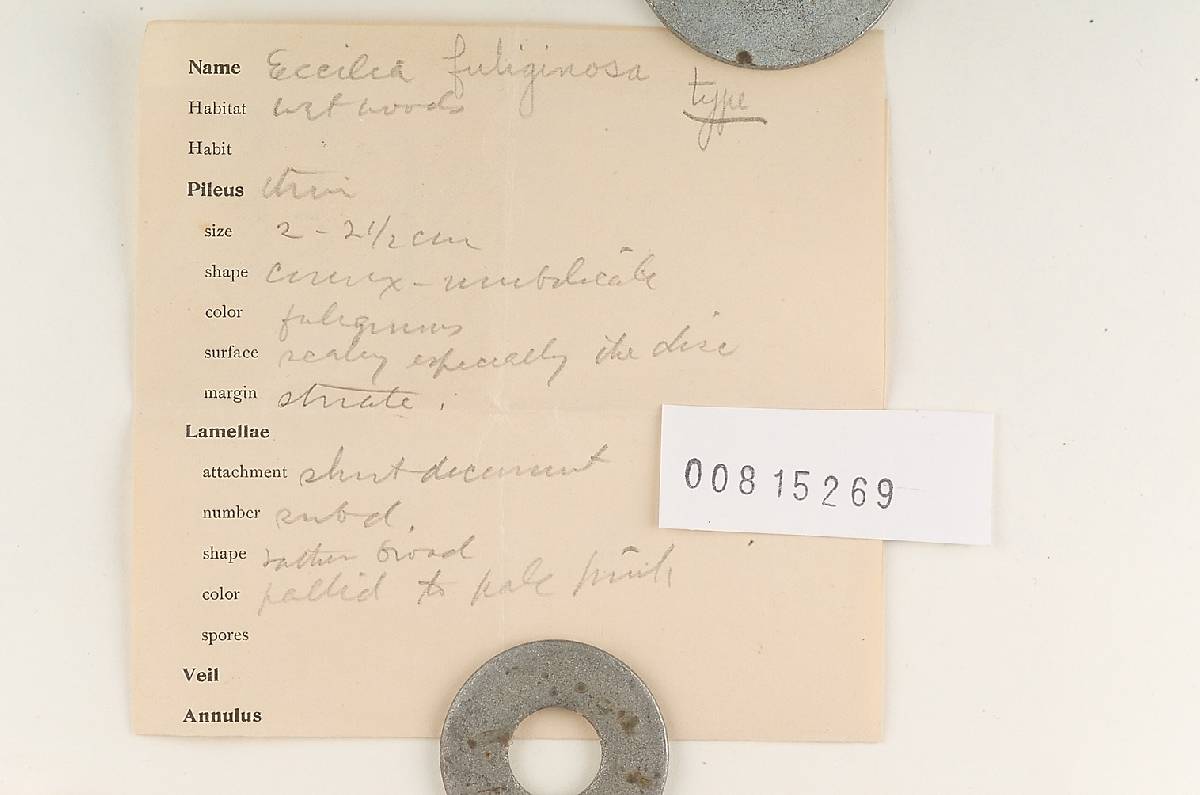 Name Eccilia fuliginosa
type
Habitat wet woods
Habit
Pileus thin
size 2 - 2 1/2 cm
shape convex - umbilicate
color fuliginous
surface scaly especially the disc
margin striate.
Lamellae
attachment short decurrent
number subd.
shape rather broad
color pallid to pale pink
spores
Veil
Annulus
00815269